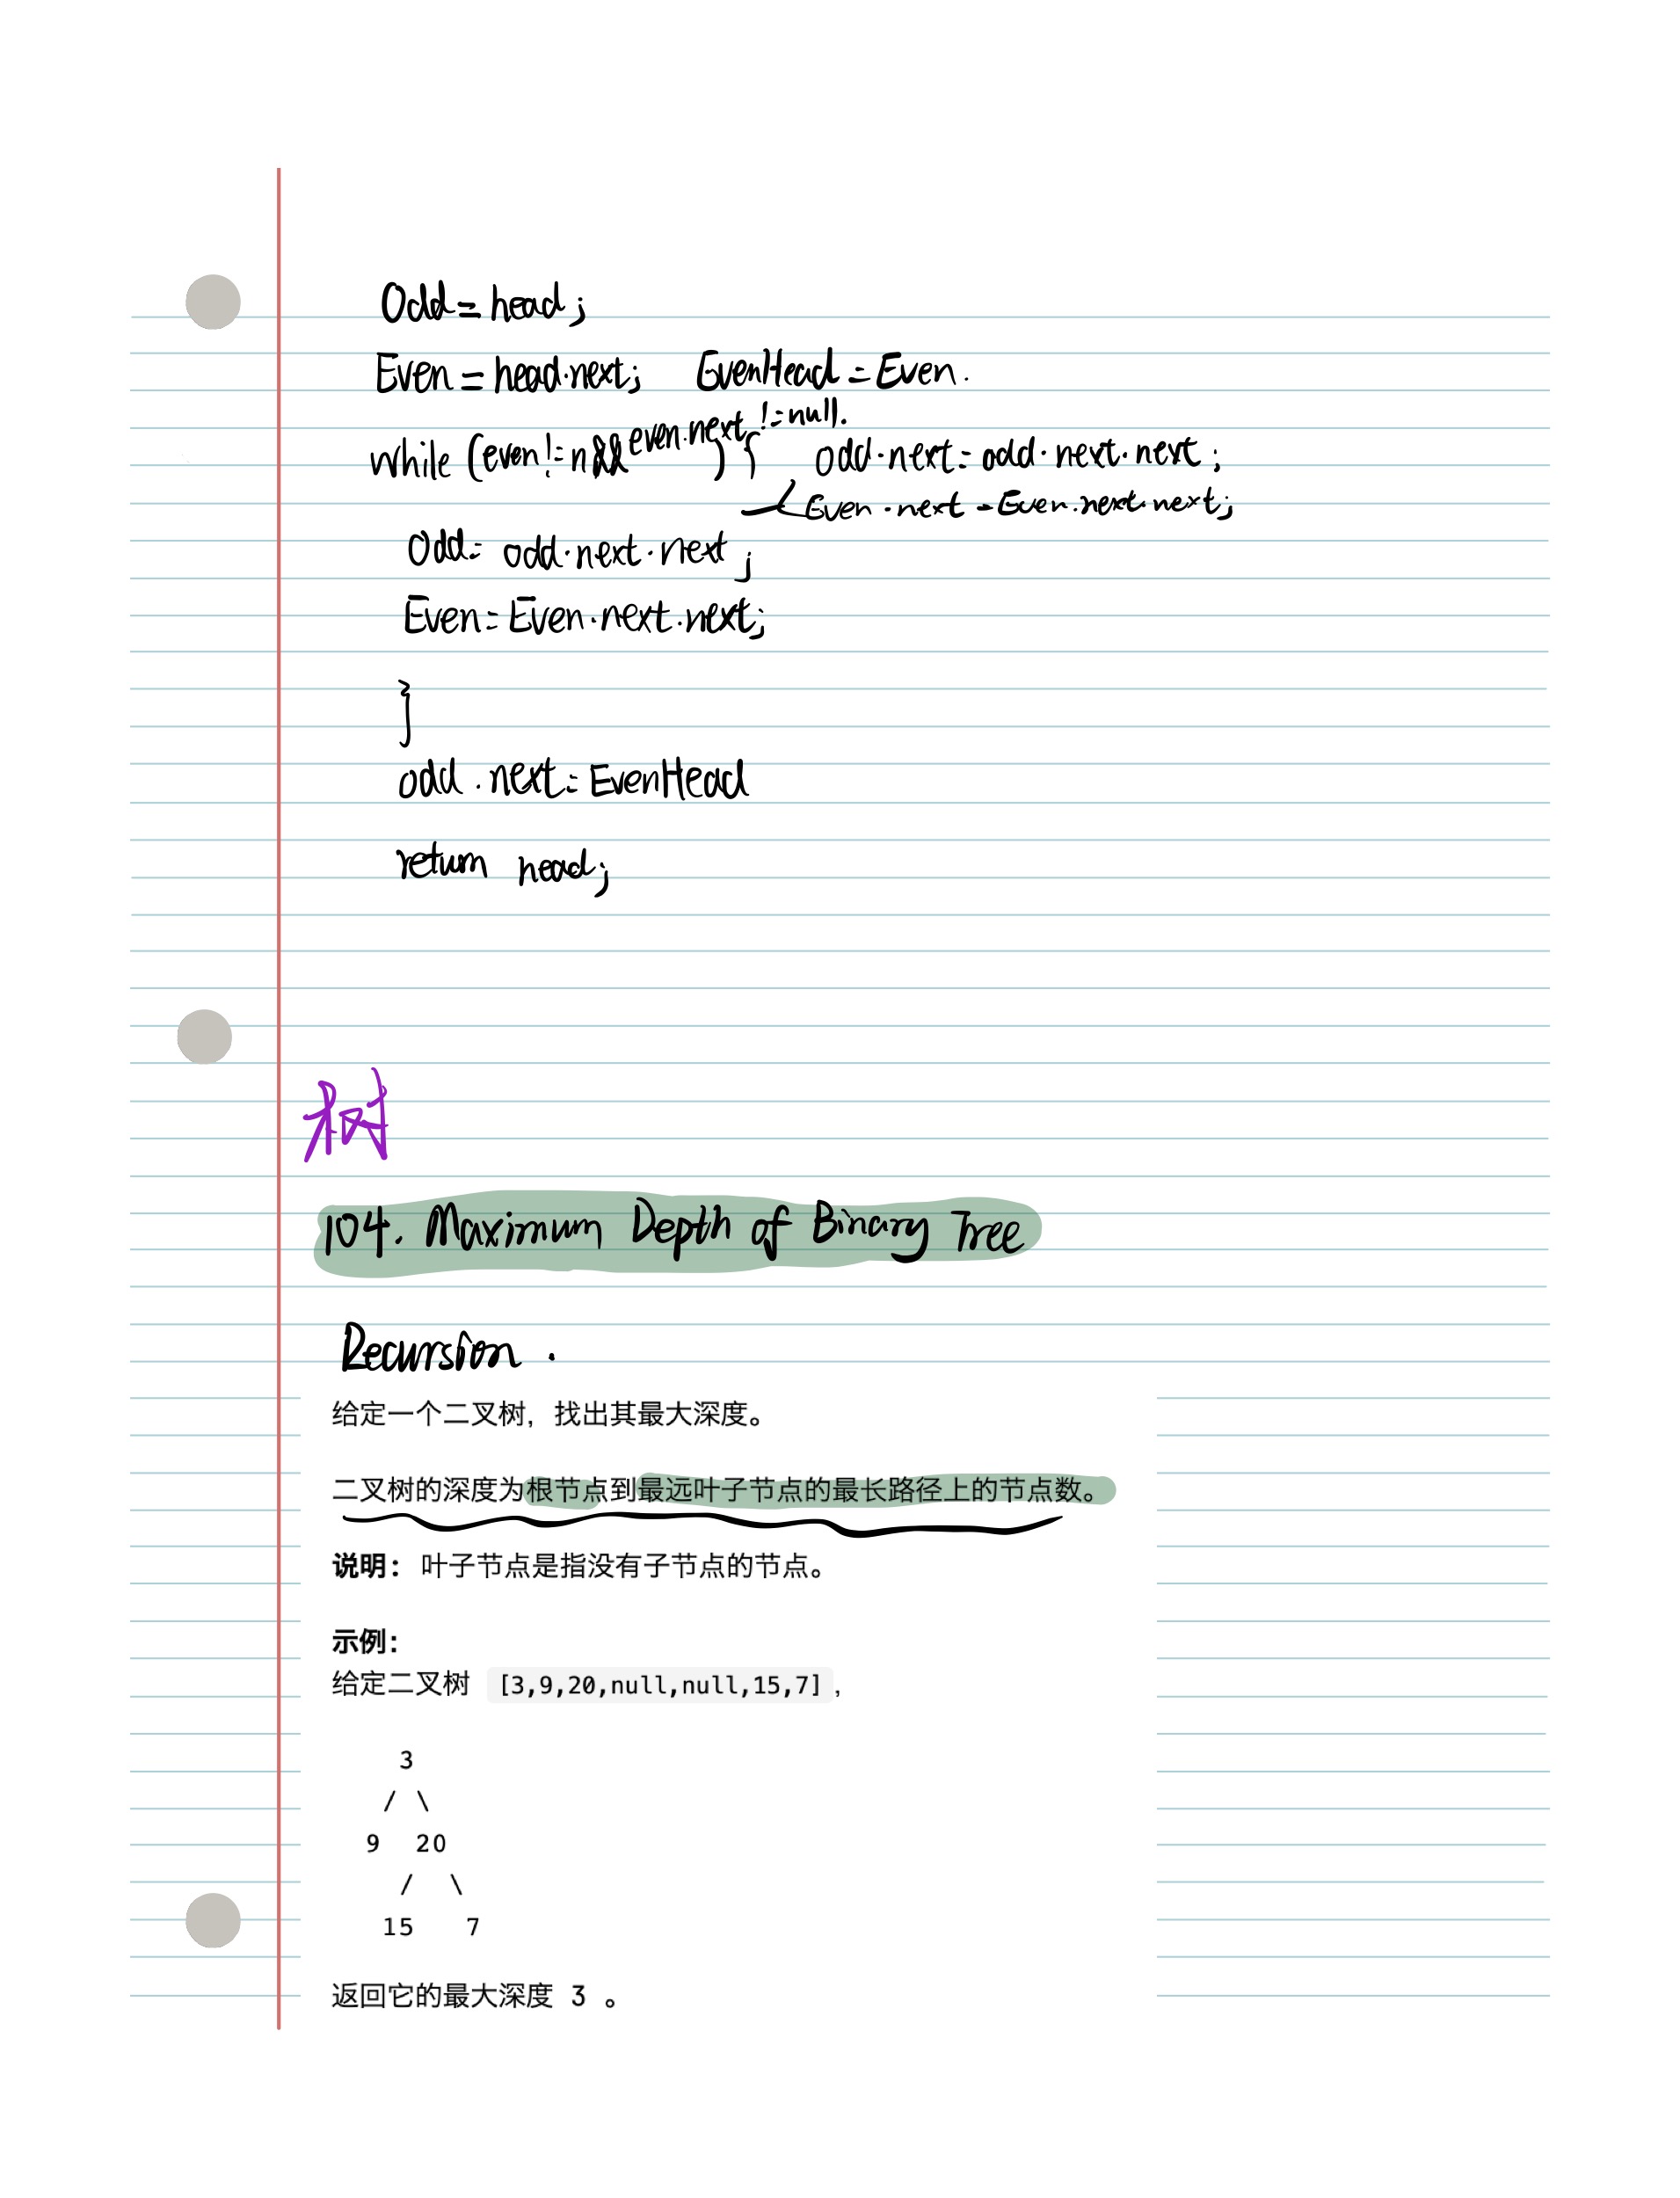 Odd = head;
Even = head.next; EvenHead = Even.
while (even != n && even.next != null.) { odd.next = odd.next.next;
Even.next = Even.next.next;
Odd = odd.next.next;
Even = Even.next.next;
}
odd.next = EvenHead
return head;
树
104. Maximum Depth of Binary Tree
Recursion.
给定一个二叉树，找出其最大深度。
二叉树的深度为根节点到最远叶子节点的最长路径上的节点数。
说明： 叶子节点是指没有子节点的节点。
示例：
给定二叉树 [3,9,20,null,null,15,7]，
3
/ \
9 20
/ \
15 7
返回它的最大深度 3 。